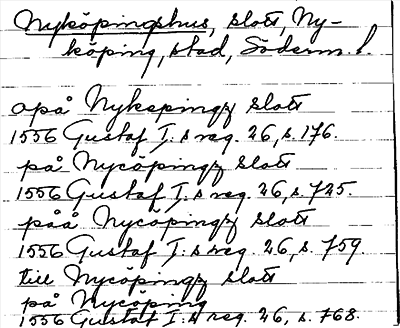 Nyköpingshus, slott, Ny-
köping, stad, Söderm. l.
opå Nykepingz slott
1556 Gustaf I:s reg. 26, s. 176.
på Nycöpingz slott
1556 Gustaf I:s reg. 26, s. 725.
påå Nycöpingz slott
1556 Gustaf I:s reg. 26, s. 759
till Nycöpingz slott
på Nycöping
1556 Gustaf I:s reg. 26, s. 768.